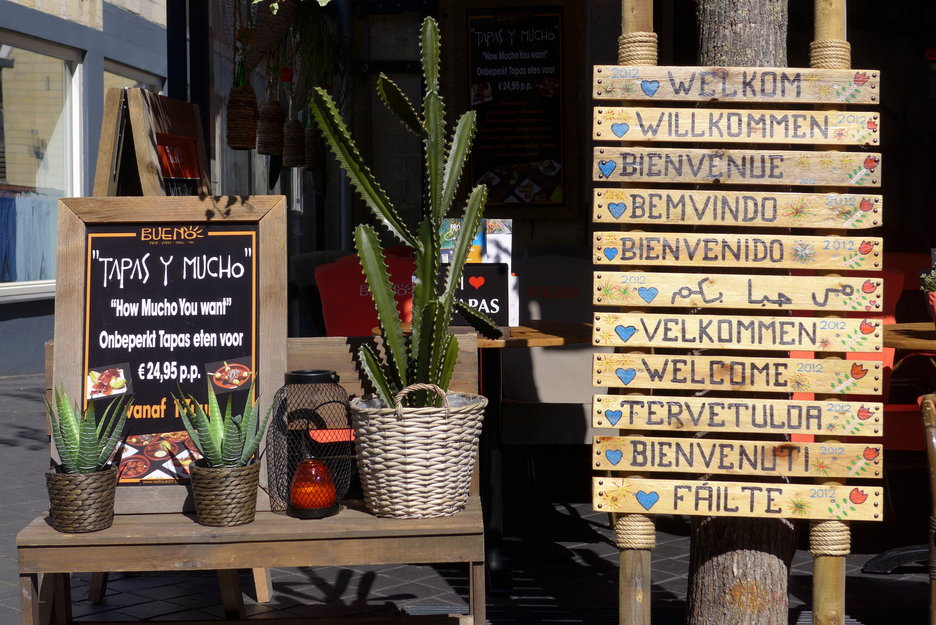 BUENO
"TAPAS Y MUCHO"
"How Mucho You want"
Onbeperkt Tapas eten voor
€ 24,95 p.p.
vanaf
"TAPAS Y MUCHO"
"How Mucho You want"
Onbeperkt Tapas eten voor
€ 24,95 p.p.
I ♥
TAPAS
2012 WELKOM
WILLKOMMEN 2012
BIENVENUE
BEMVINDO 2012
BIENVENIDO 2012
2012 مرحبا بكم
VELKOMMEN 2012
WELCOME 2012
TERVETULOA 2012
BIENVENUTI 2012
FÁILTE 2012